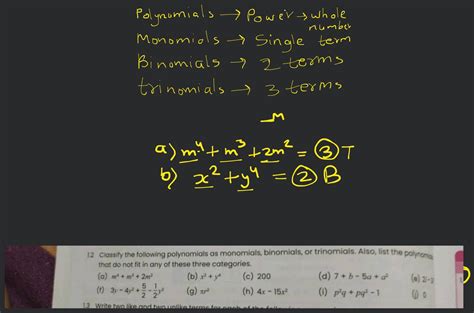 Polynomials → Power → whole
number
Monomials → Single term
Binomials → 2 terms
trinomials → 3 terms
M
a) m⁴ + m³ + 2m² = ③ T
b) x² + y⁴ = ② B
1.2 Classify the following polynomials as monomials, binomials, or trinomials. Also, list the polynomia
that do not fit in any of these three categories.
(a) m⁴ + m³ + 2m² (b) x² + y⁴ (c) 200 (d) 7 + b − 5a + a² (e)
(f) 3y − 4y² + 5/2 − 1/2 y³ (g) πr² (h) 4x − 15x² (i) p²q + pq² − 1 (j) 0
1.3 Write two like and two unlike terms for each of the